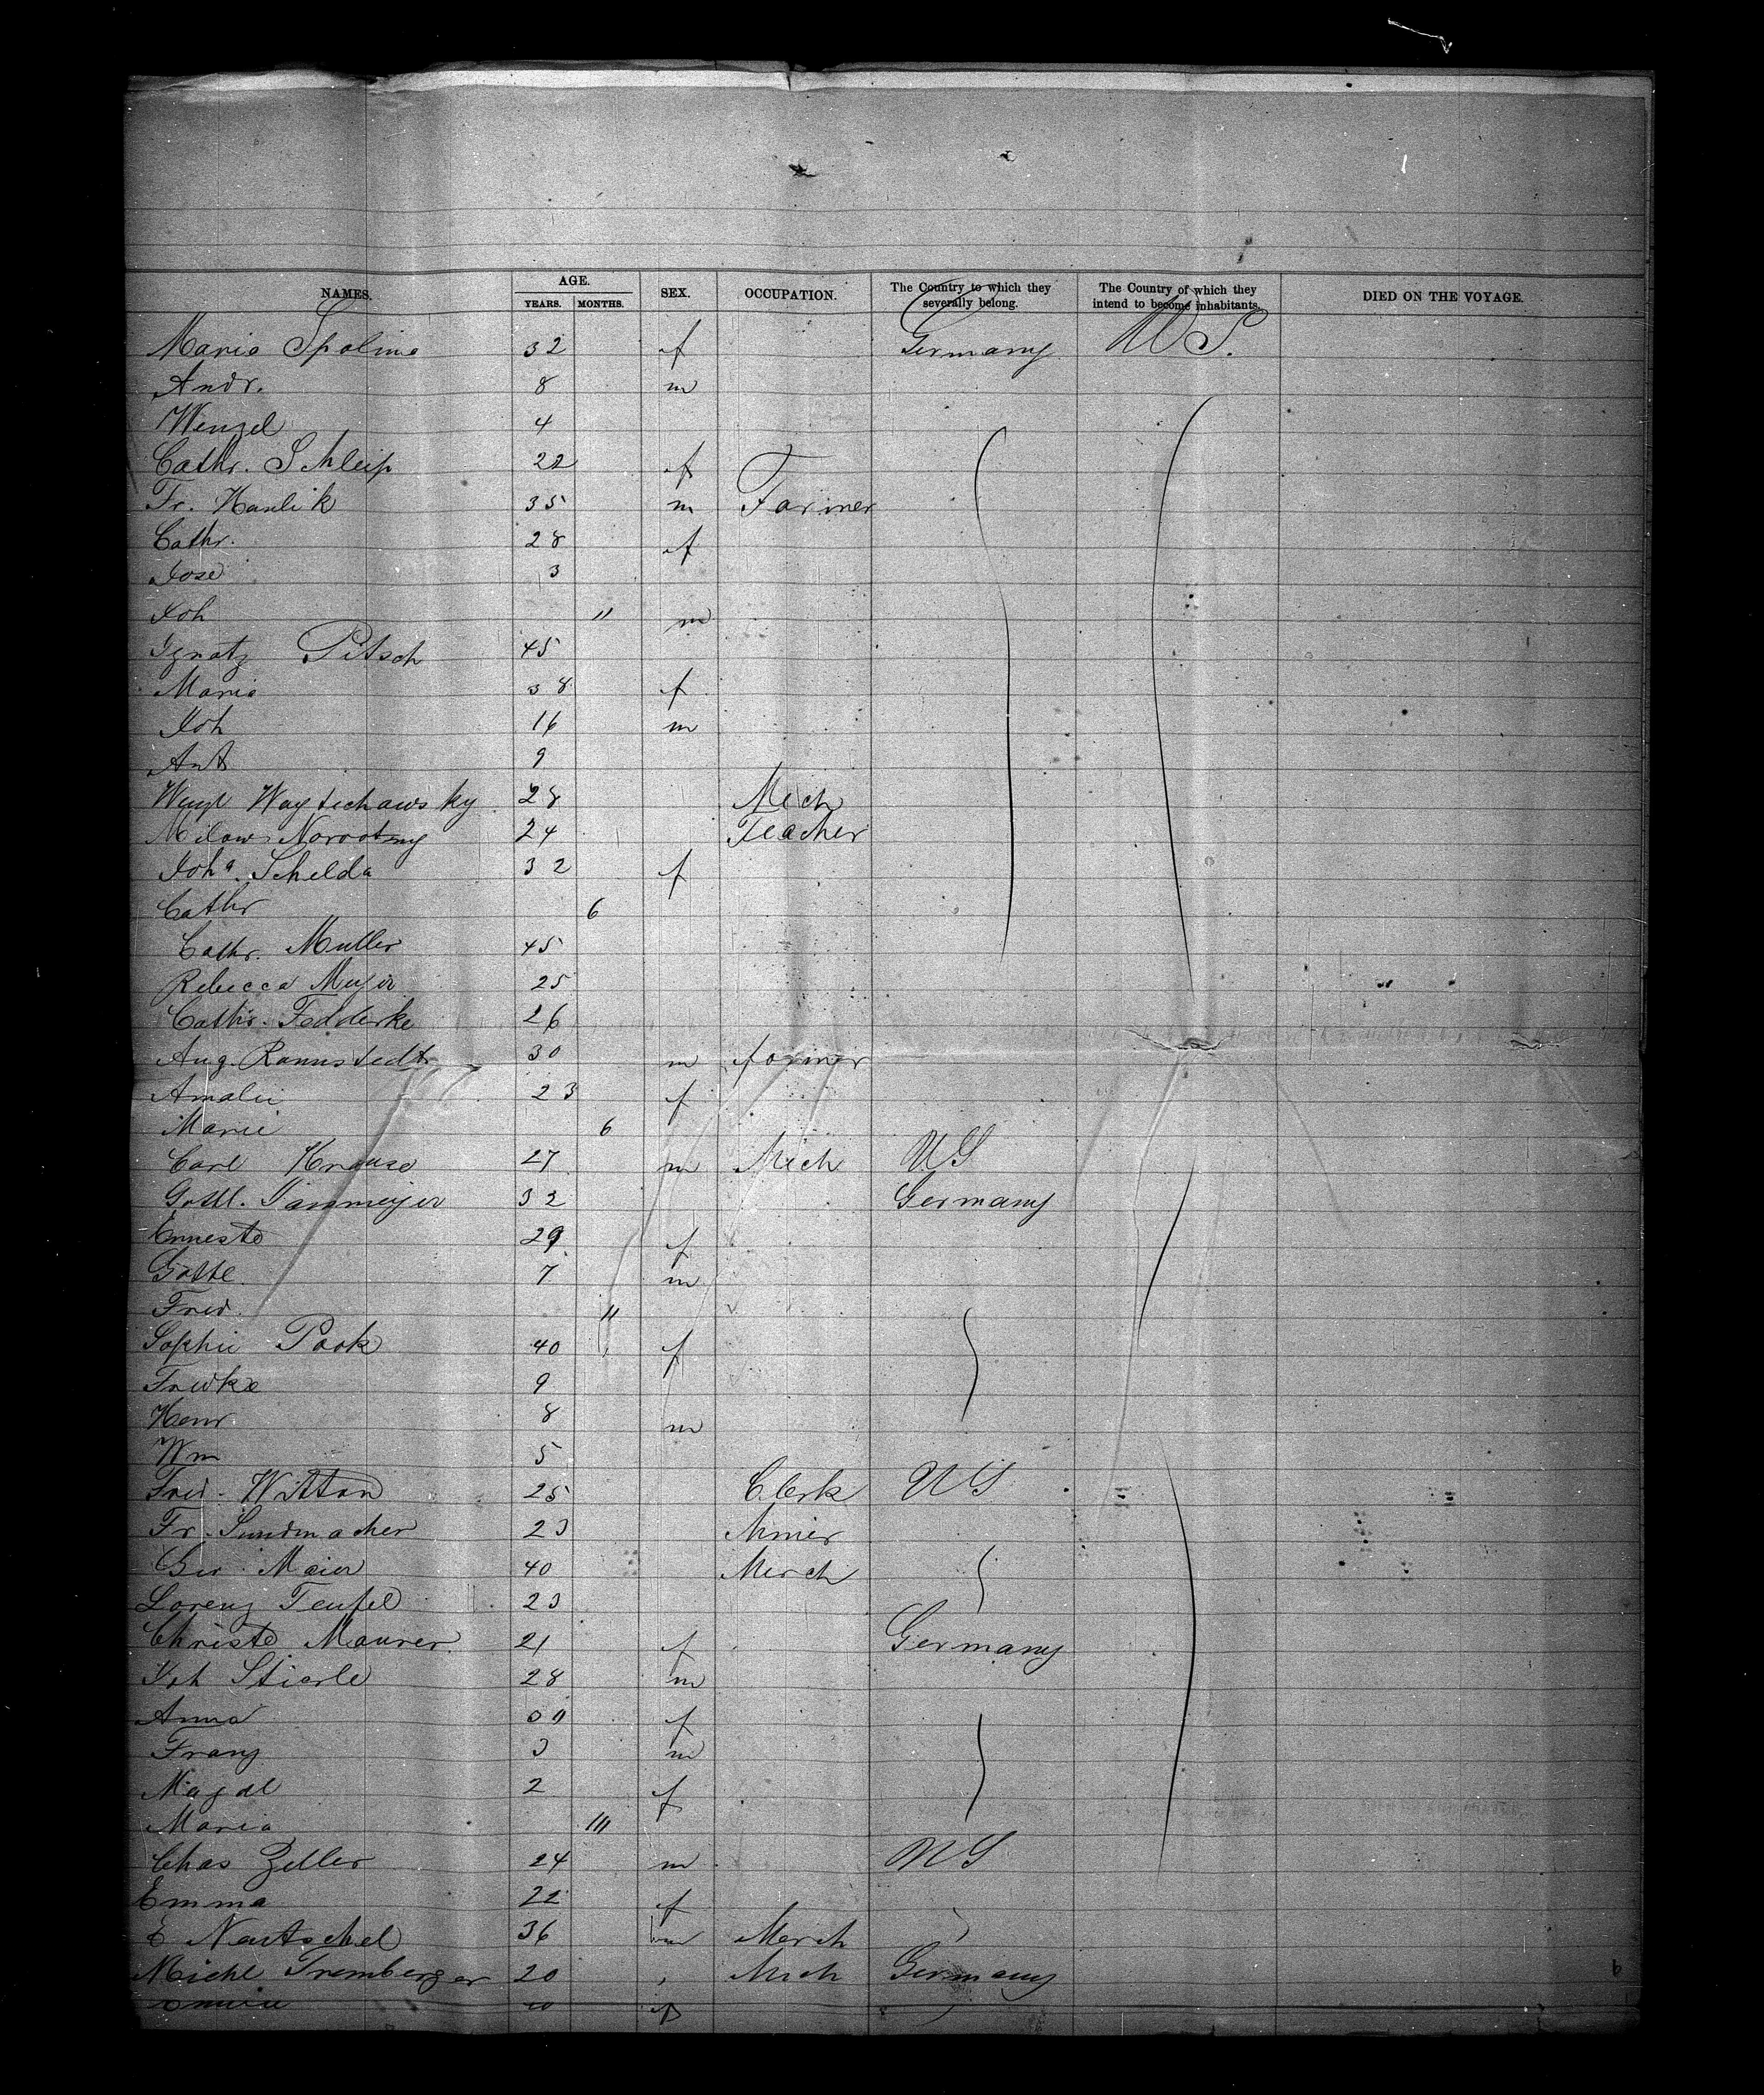 NAMES. AGE. SEX. OCCUPATION. The Country to which they severally belong. The Country of which they intend to become inhabitants. DIED ON THE VOYAGE.
YEARS. MONTHS.
Maria 32 f Germany U S.
Andr. 8 m
Wenzel 4
Cathr. Schleip 22 f
Fr. Hanlik 35 m Farmer
Cathr. 28 f
Jose 3
Joh 11 m
Ignatz Pitsch 45
Maria 38 f
Joh 16 m
Ant 9
28 Mech
Milow Norootny 24 Teacher
Joha. Schelda 32 f
Cathr 6
Cathr. Muller 45
Rebecca Meyer 25
Cathr. Fedderke 26
Aug. Rannstedt 30 m farmer
Amalie 23 f
Marie 6
Carl Krause 27 m Mech U S
Gottl. 32 Germany
Erneste 29 f
Gottl. 7 m
Fred. 11
Sophie Pook 40 f
Fredke 9
Henr 8 m
Wm 5
Fred. Witton 25 Clerk U S
Fr. Sundmacher 23
Maier 40 Merch
Lorenz Teufel 23
Christe Maurer 21 f Germany
Joh Stierle 28 m
Anna f
Franz 3 m
Magdl 2 f
Maria
Chas Zeller 24 m U S
Emma 22 f
E Nartschel 36 m Merch
Michl Tremberger 20 Mech Germany